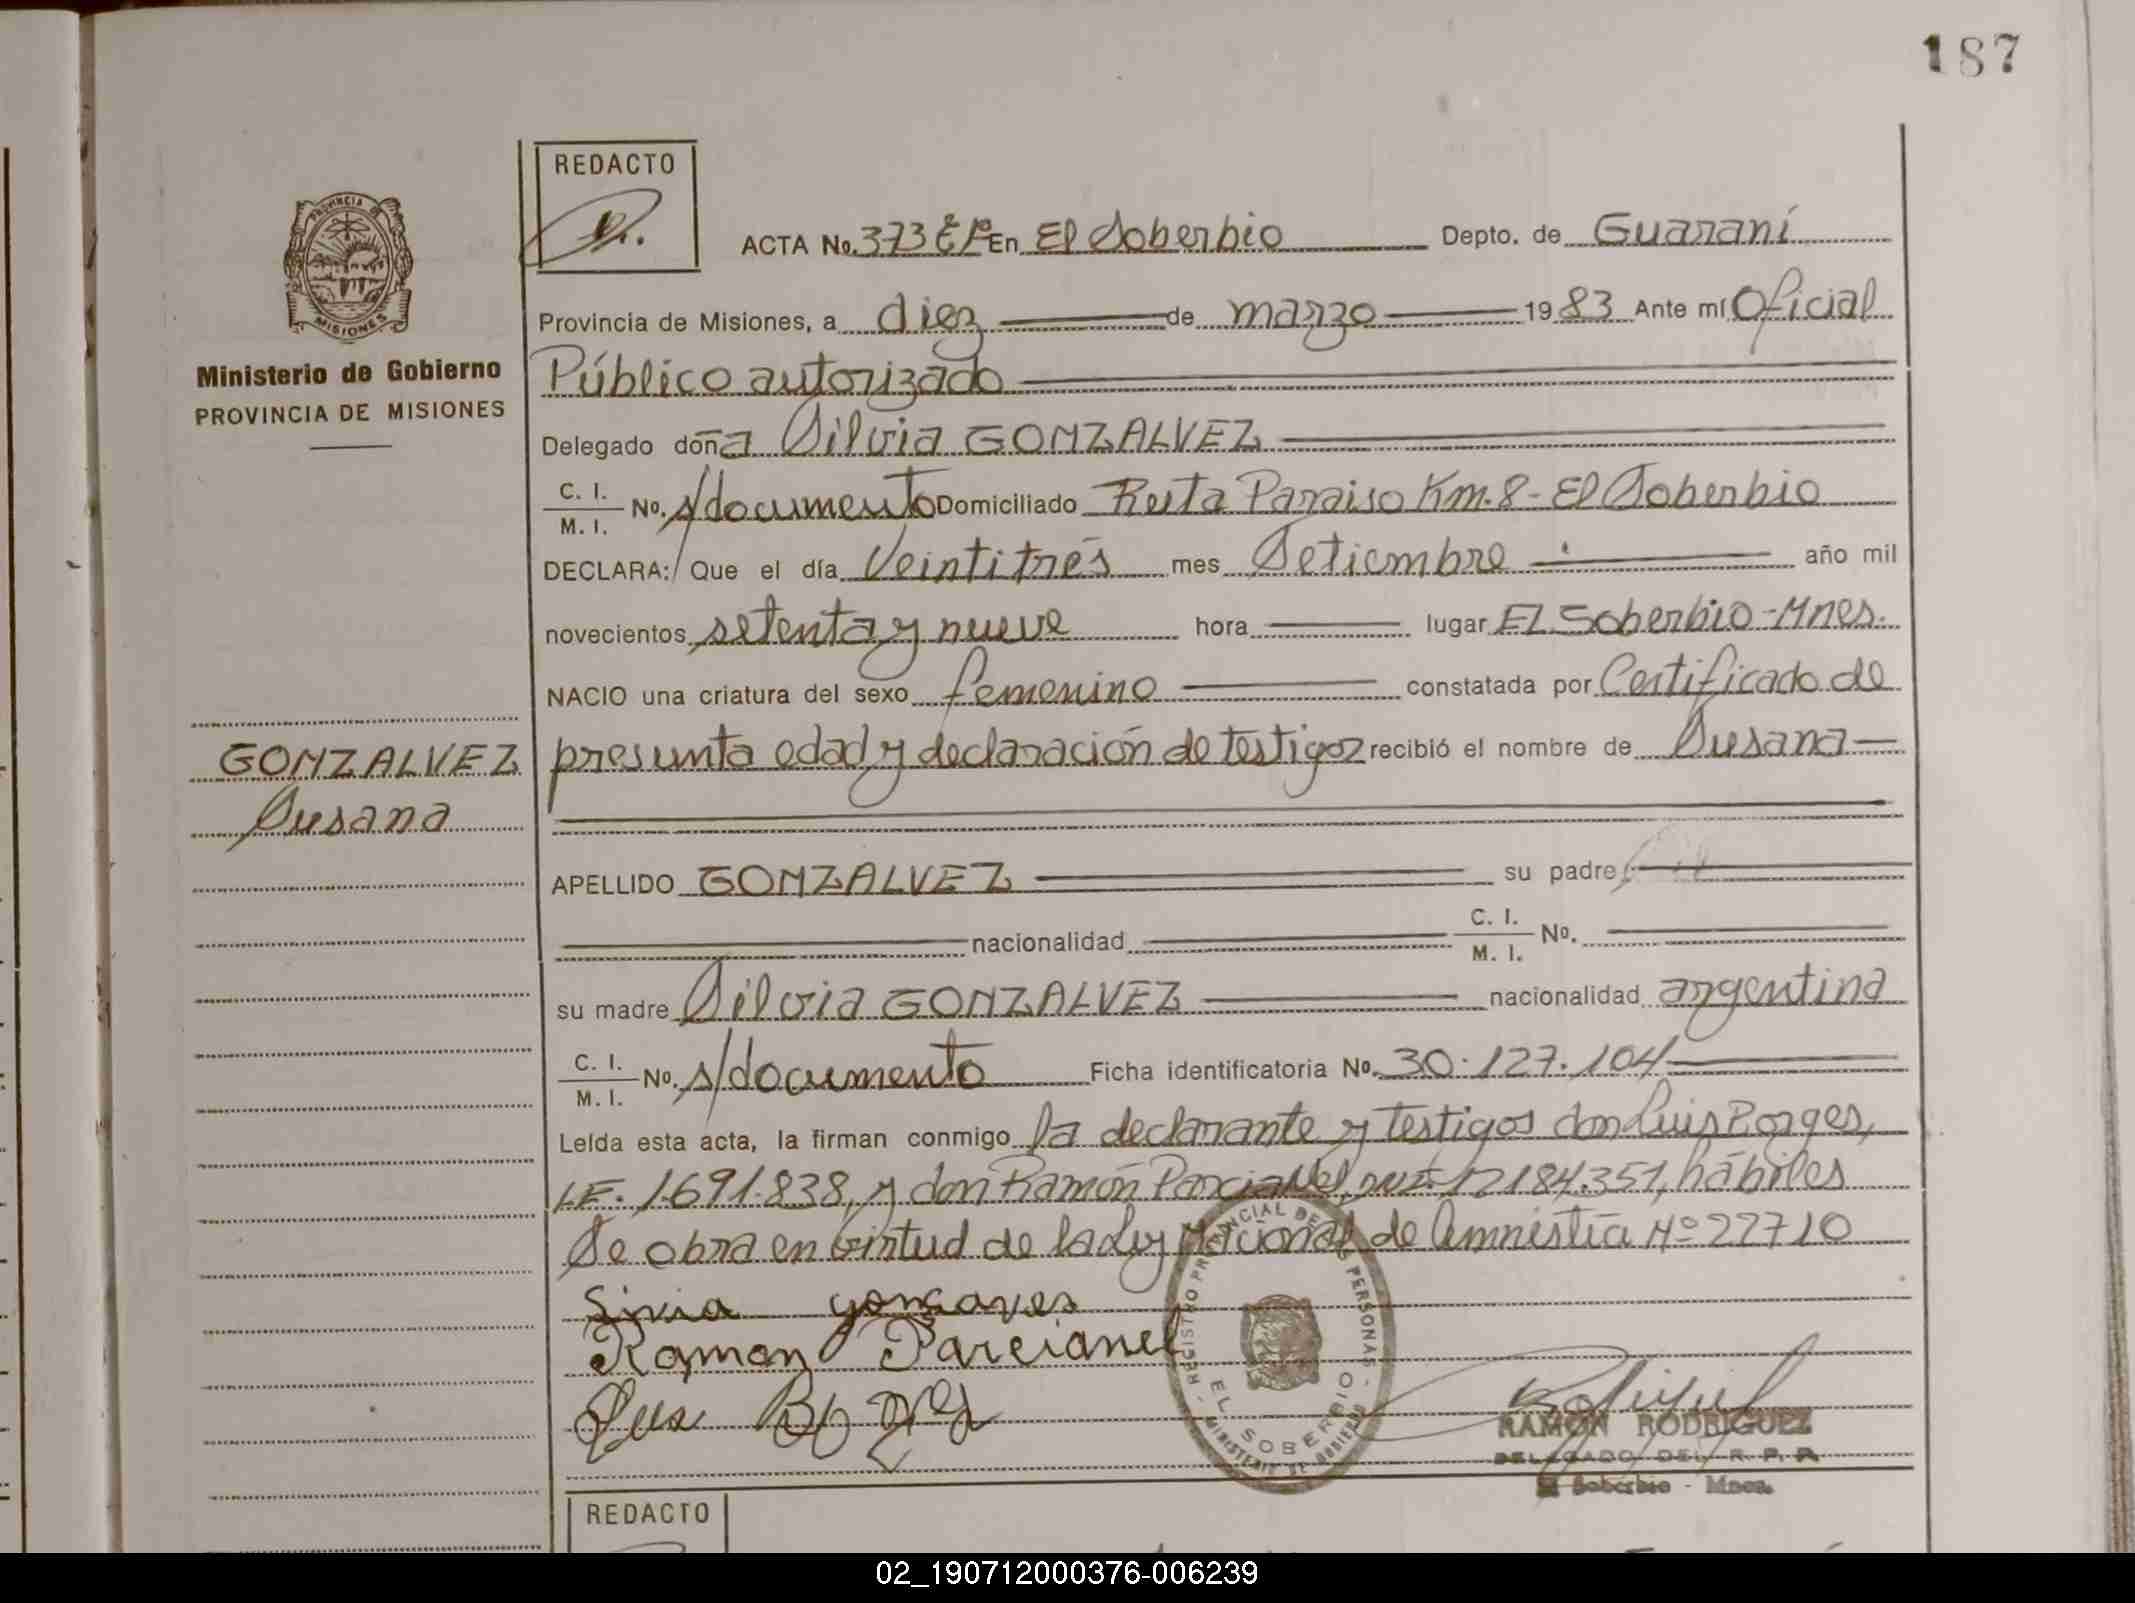 187
REDACTO
PROVINCIA DE
MISIONES
ACTA No. 373 En El Soberbio Depto. de Guaraní
Provincia de Misiones, a diez de marzo 1983 Ante mí Oficial
Ministerio de Gobierno
PROVINCIA DE MISIONES
Público autorizado
Delegado doña Silvia GONZALVEZ
C. I.
M. I. No. s/documento Domiciliado Ruta Paraiso Km. 8 - El Soberbio
DECLARA: Que el día Veintitrés mes Setiembre año mil
novecientos setenta y nueve hora lugar El Soberbio - Mnes.
NACIO una criatura del sexo femenino constatada por Certificado de
GONZALVEZ
Susana
presunta edad y declaración de testigos recibió el nombre de Susana
APELLIDO GONZALVEZ su padre
nacionalidad C. I.
M. I. No.
su madre Silvia GONZALVEZ nacionalidad argentina
C. I.
M. I. No. s/documento Ficha identificatoria No. 30.127.104
Leída esta acta, la firman conmigo la declarante y testigos don Luis Borges,
I.E. 1.691.838, y don Ramón Parcianel, 12184.351, hábiles
Se obra en virtud de la Ley Nacional de Amnistía Nº 22710
Sivia gonsaves
Ramon Parcianel
REGISTRO PROVINCIAL DE PERSONAS - MINISTERIO DE GOBIERNO
EL SOBERBIO
RAMON RODRIGUEZ
DELEGADO DEL R. P. P.
El Soberbio - Mnes.
REDACTO
02_190712000376-006239